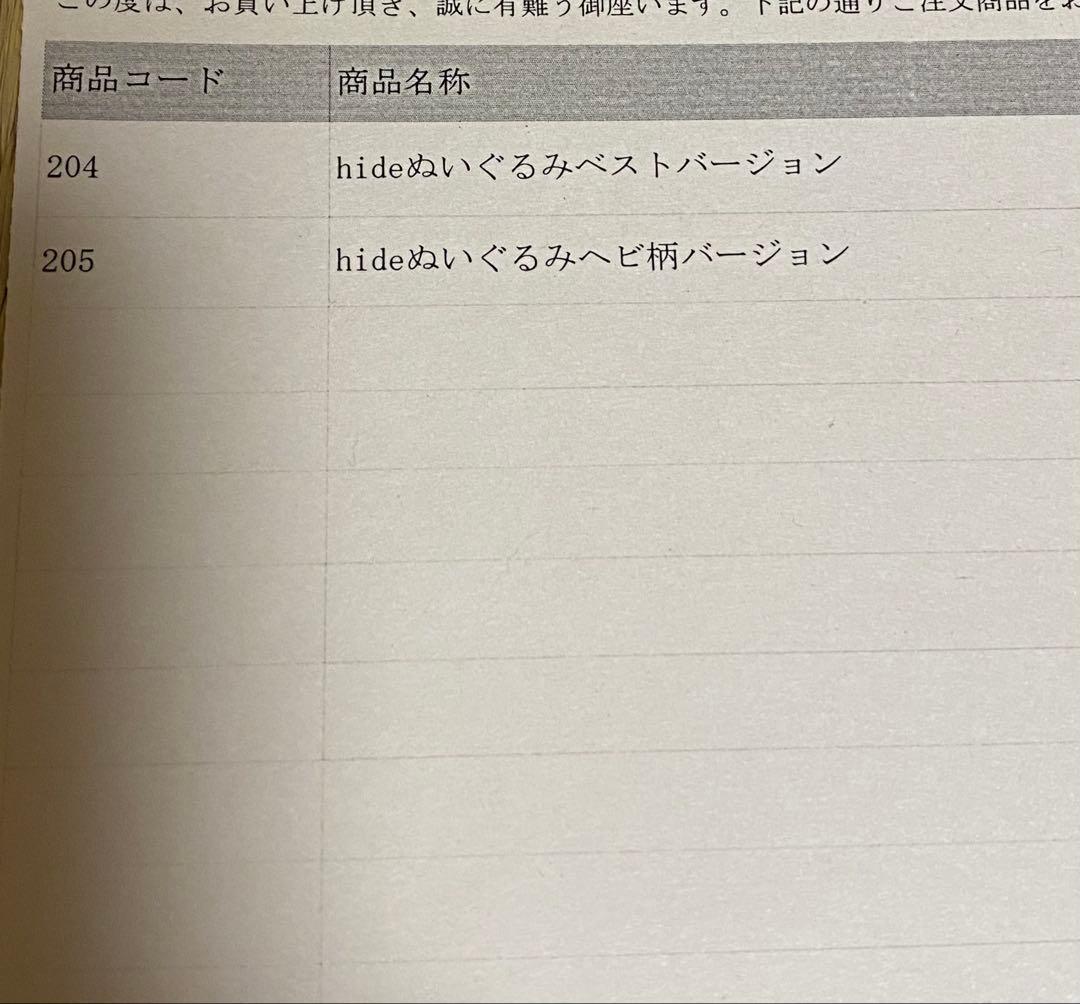 この度は、お買い上げ頂き、誠に有難う御座います。下記の通りご注文商品をお
商品コード 商品名称
204 hideぬいぐるみベストバージョン
205 hideぬいぐるみヘビ柄バージョン